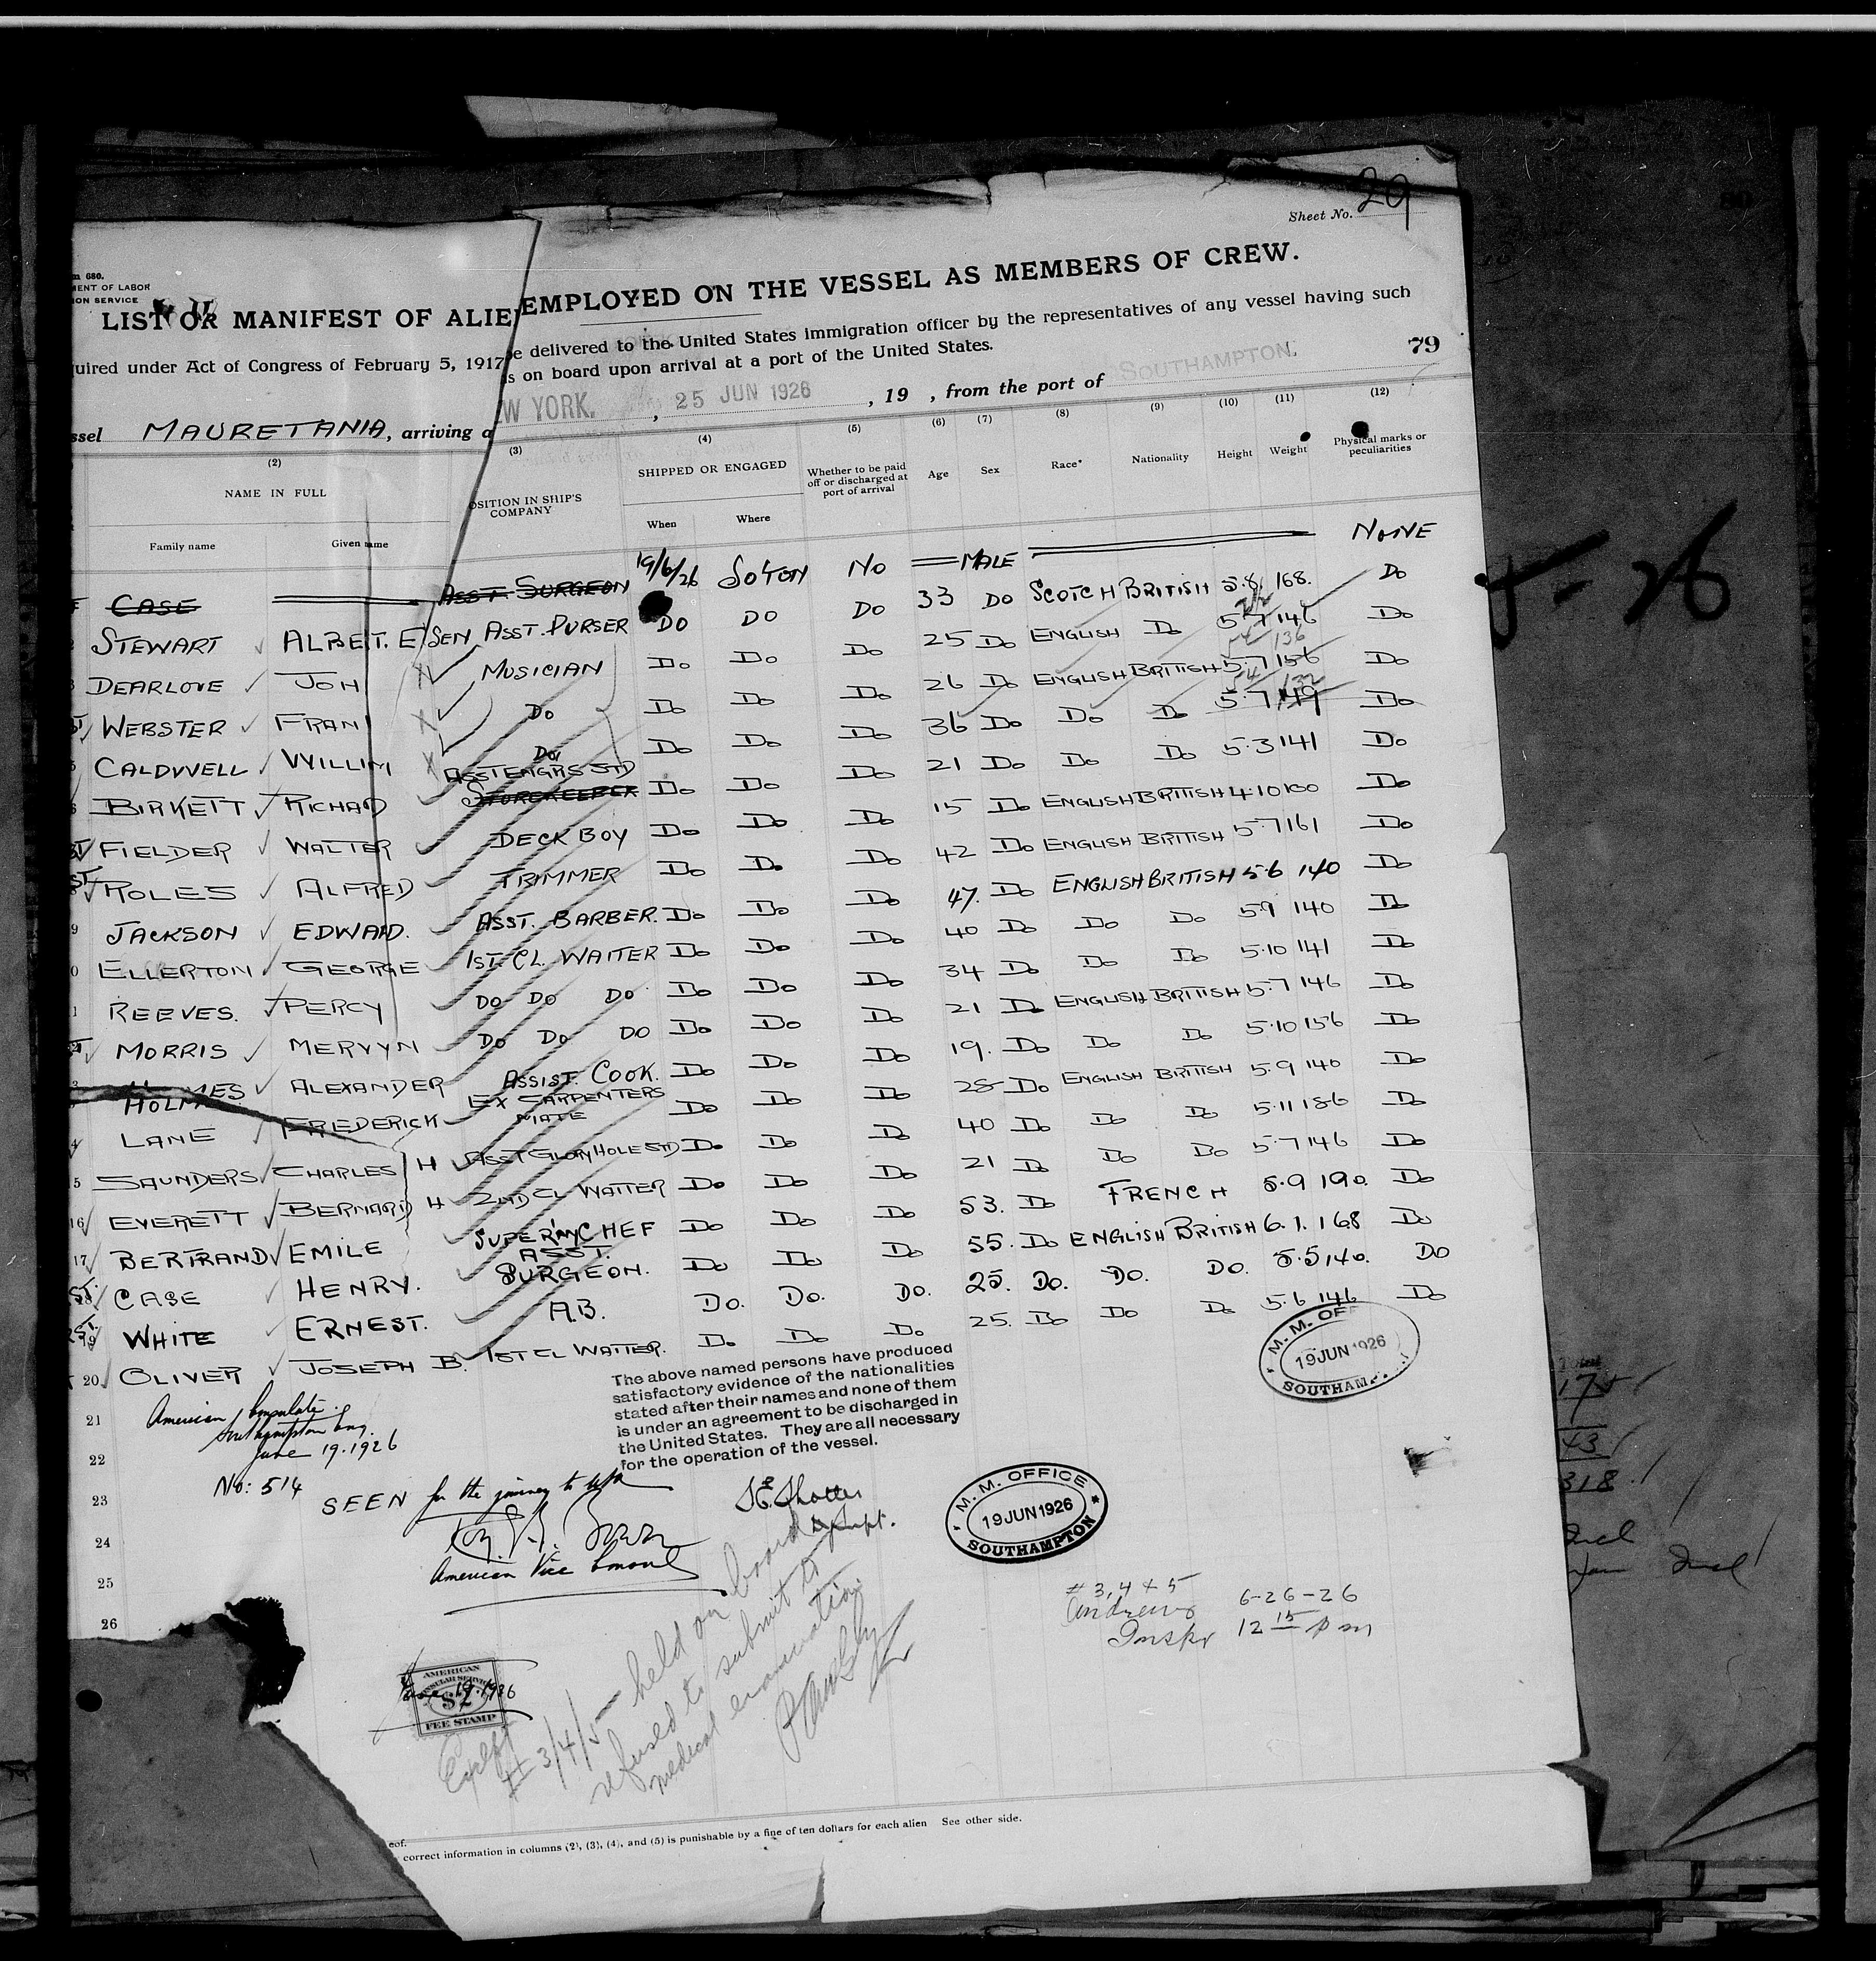 Sheet No. 29
680.
MENT OF LABOR
ION SERVICE
LIST OR MANIFEST OF ALIE EMPLOYED ON THE VESSEL AS MEMBERS OF CREW.
uired under Act of Congress of February 5, 1917 be delivered to the United States immigration officer by the representatives of any vessel having such
s on board upon arrival at a port of the United States.
79
ssel MAURETANIA, arriving a W YORK. , 25 JUN 1926 , 19 , from the port of SOUTHAMPTON.
(2) (3) (4) (5) (6) (7) (8) (9) (10) (11) (12)
NAME IN FULL
Family name Given name
OSITION IN SHIP'S COMPANY
SHIPPED OR ENGAGED
When Where
Whether to be paid off or discharged at port of arrival
Age Sex Race* Nationality Height Weight Physical marks or peculiarities
CASE ASST. SURGEON 19/6/26 SO'TON NO MALE NONE
STEWART ALBE T. E SEN ASST. PURSER DO DO DO 33 DO SCOTCH BRITISH 5.8 168. DO
DEARLOVE JOH MUSICIAN DO DO DO 25 DO ENGLISH DO 5.7 146 DO
54 136
WEBSTER FRAN DO DO DO DO 26 DO ENGLISH BRITISH 5.7 156 DO
54 132
CALDWELL WILLI M DO DO DO DO 36 DO DO DO 5.7 149 DO
BIRKETT RICHA D ASST ENGRS STD STOREKEEPER DO DO DO 21 DO DO DO 5.3 141 DO
FIELDER WALTER DECK BOY DO DO DO 15 DO ENGLISH BRITISH 4.10 100 DO
ROLES ALFRED TRIMMER DO DO DO 42 DO ENGLISH BRITISH 5.7 161 DO
9 JACKSON EDWARD. ASST. BARBER. DO DO DO 47. DO ENGLISH BRITISH 5.6 140 DO
0 ELLERTON GEORGE 1ST. CL. WAITER DO DO DO 40 DO DO DO 5.9 140 DO
1 REEVES. PERCY DO DO DO DO DO DO 34 DO DO DO 5.10 141 DO
MORRIS MERVYN DO DO DO DO DO DO 21 DO ENGLISH BRITISH 5.7 146 DO
HOLMES ALEXANDER ASSIST. COOK. DO DO DO 19. DO DO DO 5.10 156 DO
4 LANE FREDERICK EX CARPENTERS MATE DO DO DO 28 DO ENGLISH BRITISH 5.9 140 DO
5 SAUNDERS CHARLES H ASST GLORY HOLE STD DO DO DO 40 DO DO DO 5.11 186 DO
16 EVERETT BERNARD H 2ND CL WAITER DO DO DO 21 DO DO DO 5.7 146 DO
17 BERTRAND EMILE SUPER'N'Y CHEF DO DO DO 53. DO FRENCH 5.9 190. DO
ST. CASE HENRY. ASST. SURGEON. DO DO DO 55. DO ENGLISH BRITISH 6.1. 168 DO
19 WHITE ERNEST. A.B. DO. DO. DO. 25. DO. DO. DO. 5.5 140. DO
20. OLIVER JOSEPH B. 1ST CL WAITER. DO DO DO 25. DO DO DO 5.6 146 DO
The above named persons have produced
satisfactory evidence of the nationalities
stated after their names and none of them
is under an agreement to be discharged in
the United States. They are all necessary
for the operation of the vessel.
M. M. OFF
19 JUN 1926
SOUTHAM
21 American Consulate.
Southampton Eng.
22 June 19. 1926
No: 514
23 SEEN for the journey to
24
American Vice Consul
25
26
Supt.
M. M. OFFICE
19 JUN 1926
SOUTHAMPTON
# 3, 4 + 5 6-26-26
Andrews
Inspr 12 15 pm
AMERICAN
CONSULAR SERVICE
$2
FEE STAMP
June 19. 1926
Except
# 3/4/5 held on board
refused to submit to
medical examination.
eof.
correct information in columns (2), (3), (4), and (5) is punishable by a fine of ten dollars for each alien See other side.
26
43
318